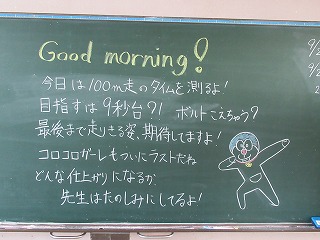 Good morning!
今日は100m走のタイムを測るよ!
目指すは9秒台?! ボルトこえちゃう?
最後まで走りきる姿、期待してますよ!
コロコロガーレもついにラストだね
どんな仕上がりになるか、
先生はたのしみにしてるよ!
9/2
9/2
2